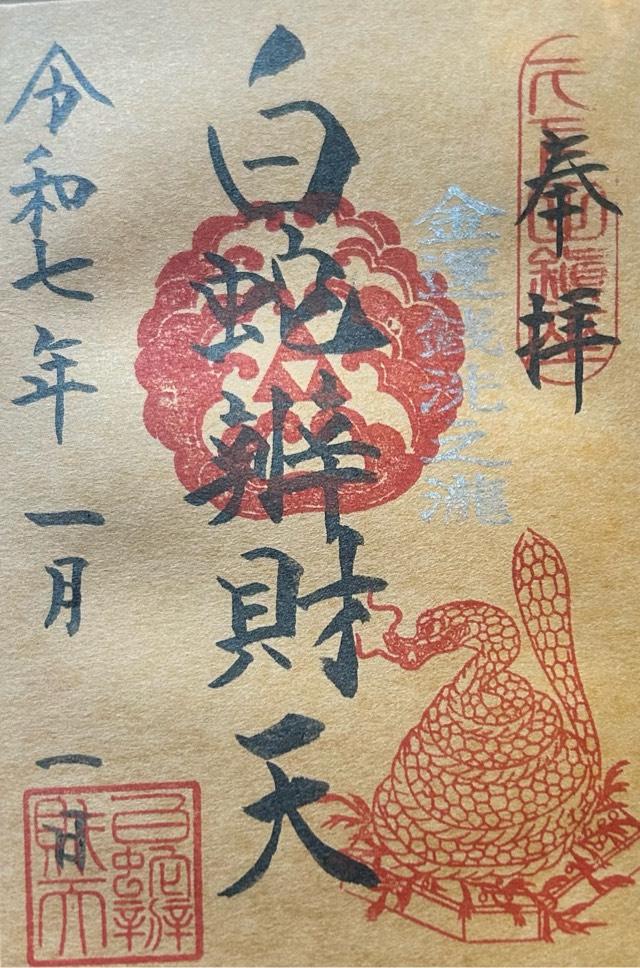 奉拝
金運銭洗之瀧
白蛇辨財天
令和七年一月一日
白蛇辨
財天